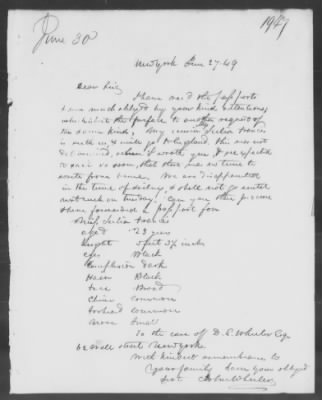 June 30
1947
New York Jun 27. 49
Dear Sir,
I have rec'd the passports
& am much obliged by your kind attentions,
which is the preface to another request of
the same kind. My cousin Julia
is with me & will go to England, this was not
determined, when I wrote you, & we expected
to sail so soon, that there was no time to
write from home. We are disappointed
in the time of sailing, & shall not go under
next week on Tuesday. Can you then procure
& have forwarded a passport for
Miss Julia
aged 23 years
height 5 feet 3½ inches
eyes Black
Complexion dark
Hair Black
face Broad
Chin Common
forehead Common
nose Small
to the care of D. E. Wheeler Esq
62 Wall street New York.
With kindest remembrance to
your family I am your obliged
Svt. John Wheeler